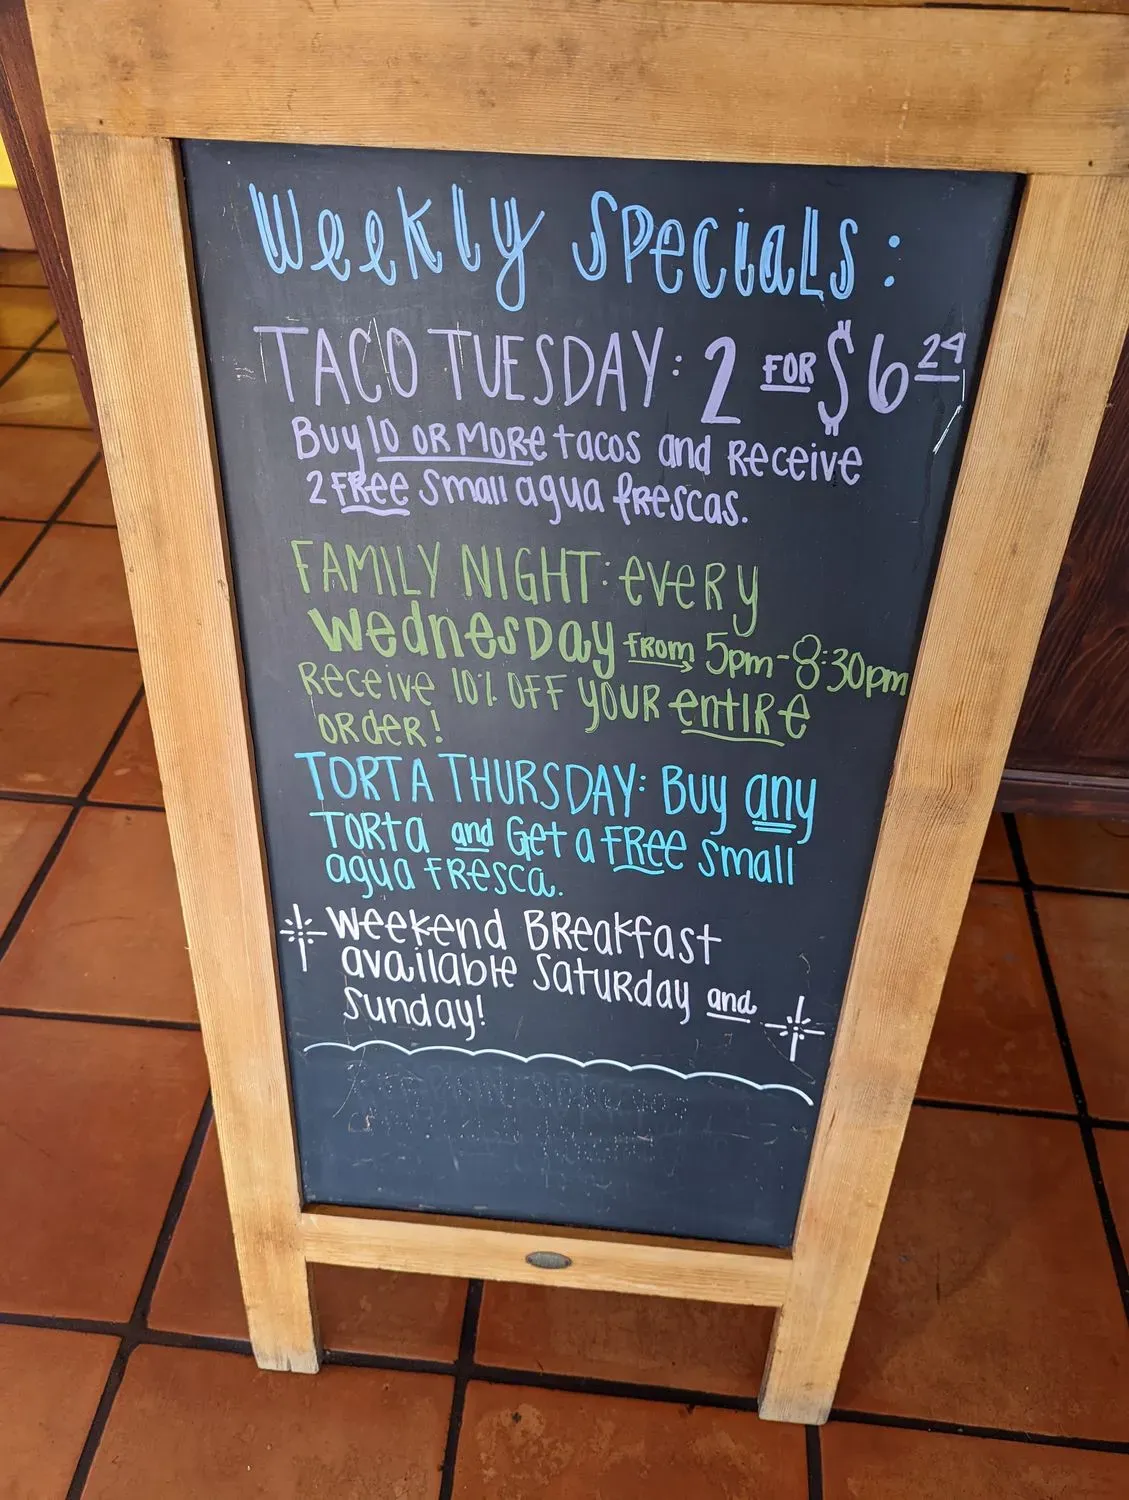 Weekly Specials:
TACO TUESDAY: 2 FOR $6 24
Buy 10 OR MORE tacos and Receive
2 FREE Small agua frescas.
FAMILY NIGHT: every
Wednesday from 5pm-8:30pm
Receive 10% OFF YOUR entire
order!
TORTA THURSDAY: Buy any
Torta and Get a FREE small
agua fresca.
Weekend Breakfast
available Saturday and
Sunday!